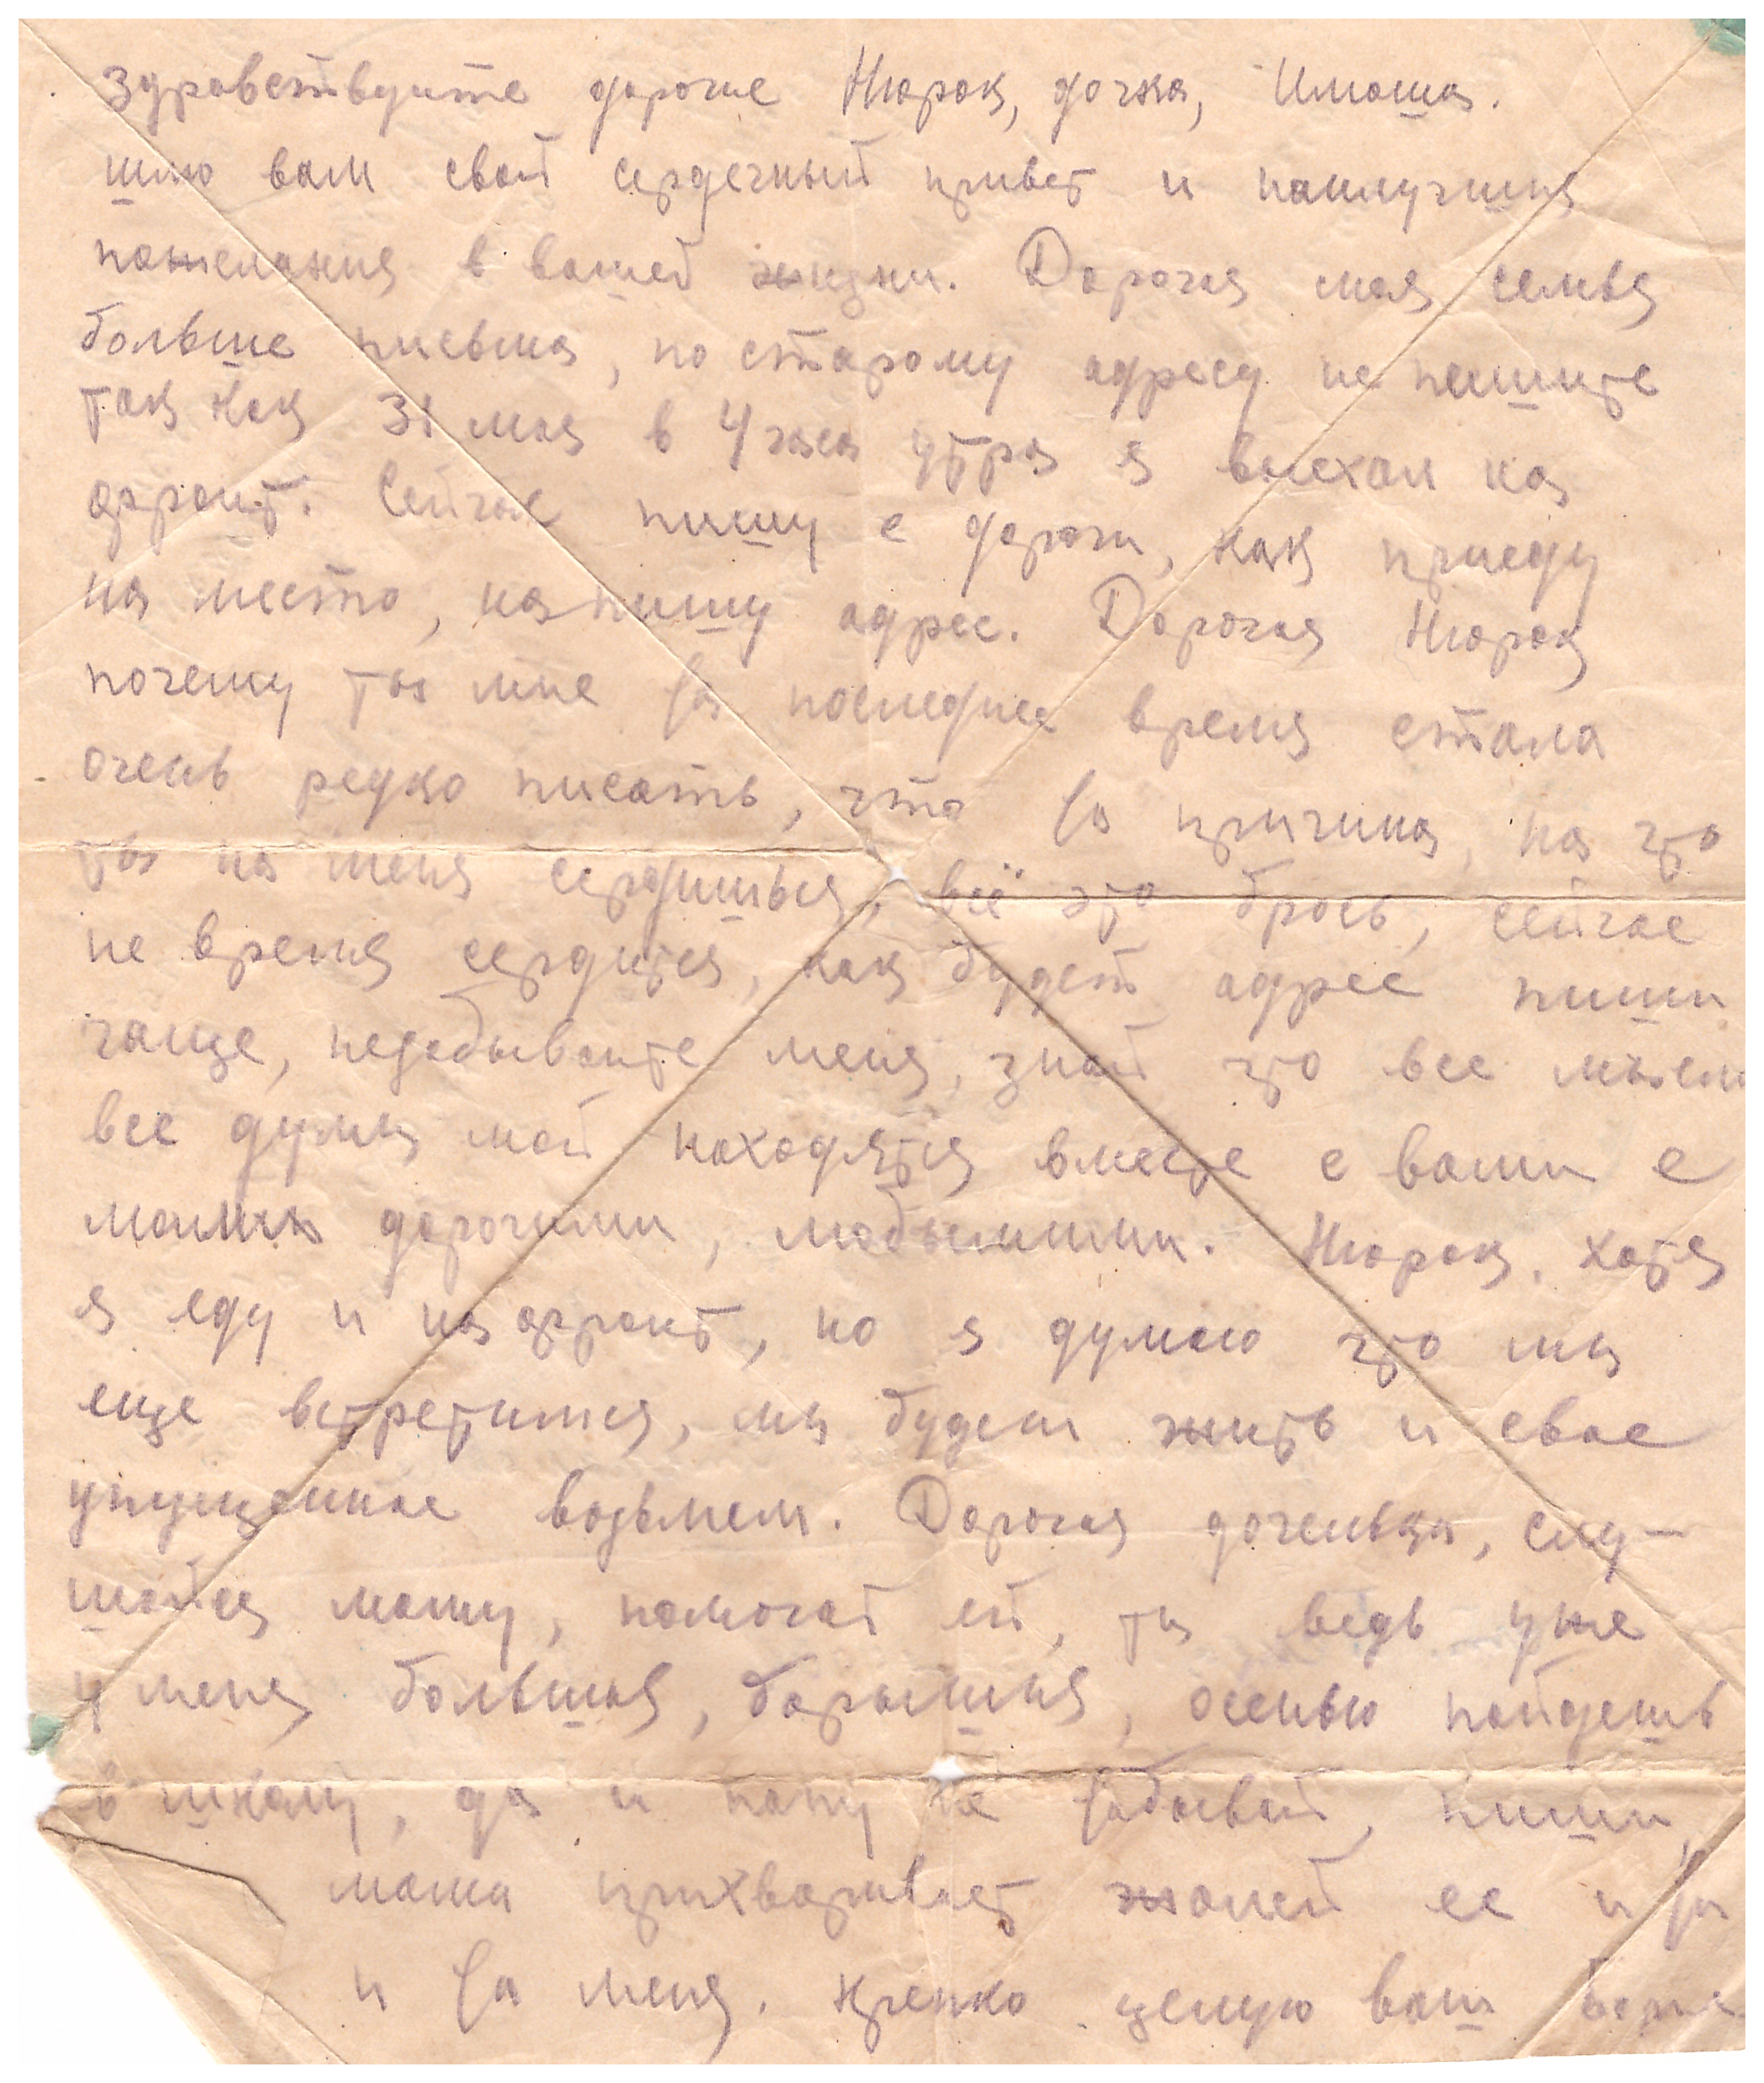 Здравствуйте дорогие Нюрок, дочка, Имоша.
шлю вам свой сердечный привет и наилучшия
пожелания в вашей жизни. Дорогая моя семья
больше письма, по старому адресу не пишите
так как 31 мая в 4 часа утра я выехал на
фронт. Сейчас пишу с дороги, как приеду
на место, напишу адрес. Дорогая Нюрок
почему ты мне за последнее время стала
очень редко писать, что за причина, на что
ты на меня сердишься, всё это брось, сейчас
не время сердится, как будет адрес пиши
чаще, незабывайте меня, знай что все мысли
все думы мои находятся вместе с вами с
моими дорогими, любимыми. Нюрок, хотя
я еду и на фронт, но я думаю что мы
еще встретимся, мы будем жить и свое
упущенное возьмем. Дорогая доченька, слу-
шайся маму, помогай ей, ты ведь уже
у меня большая, барышня, осенью пойдешь
в школу, да и папу не забывай, пиши,
мама прихварывает жалей ее и за
и за меня. Крепко целую ваш